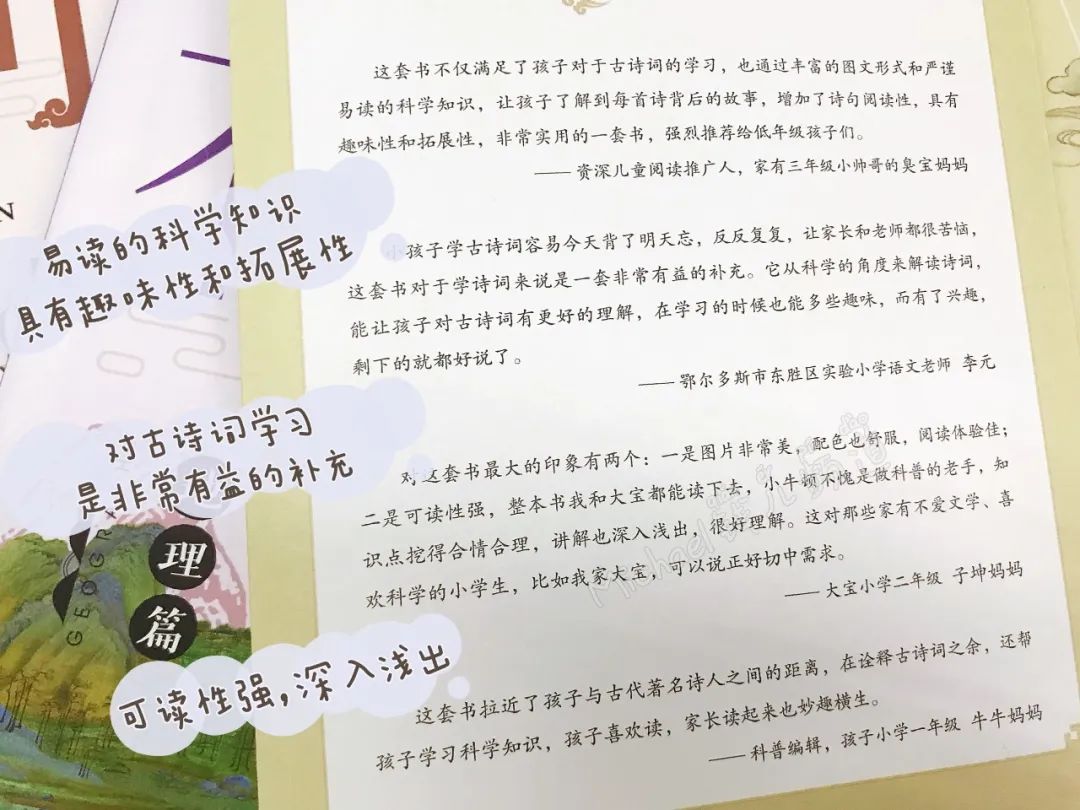 这套书不仅满足了孩子对于古诗词的学习，也通过丰富的图文形式和严谨
易读的科学知识，让孩子了解到每首诗背后的故事，增加了诗句阅读性，具有
趣味性和拓展性，非常实用的一套书，强烈推荐给低年级孩子们。
——资深儿童阅读推广人，家有三年级小帅哥的臭宝妈妈
小孩子学古诗词容易今天背了明天忘，反反复复，让家长和老师都很苦恼，
这套书对于学诗词来说是一套非常有益的补充。它从科学的角度来解读诗词，
能让孩子对古诗词有更好的理解，在学习的时候也能多些趣味，而有了兴趣，
剩下的就都好说了。
——鄂尔多斯市东胜区实验小学语文老师 李元
对这套书最大的印象有两个：一是图片非常美，配色也舒服，阅读体验佳；
二是可读性强，整本书我和大宝都能读下去，小牛顿不愧是做科普的老手，知
识点挖得合情合理，讲解也深入浅出，很好理解。这对那些家有不爱文学、喜
欢科学的小学生，比如我家大宝，可以说正好切中需求。
——大宝小学二年级 子坤妈妈
这套书拉近了孩子与古代著名诗人之间的距离，在诠释古诗词之余，还帮
孩子学习科学知识，孩子喜欢读，家长读起来也妙趣横生。
——科普编辑，孩子小学一年级 牛牛妈妈
易读的科学知识
具有趣味性和拓展性
对古诗词学习
是非常有益的补充
可读性强，深入浅出
理
篇
GEOGR
N